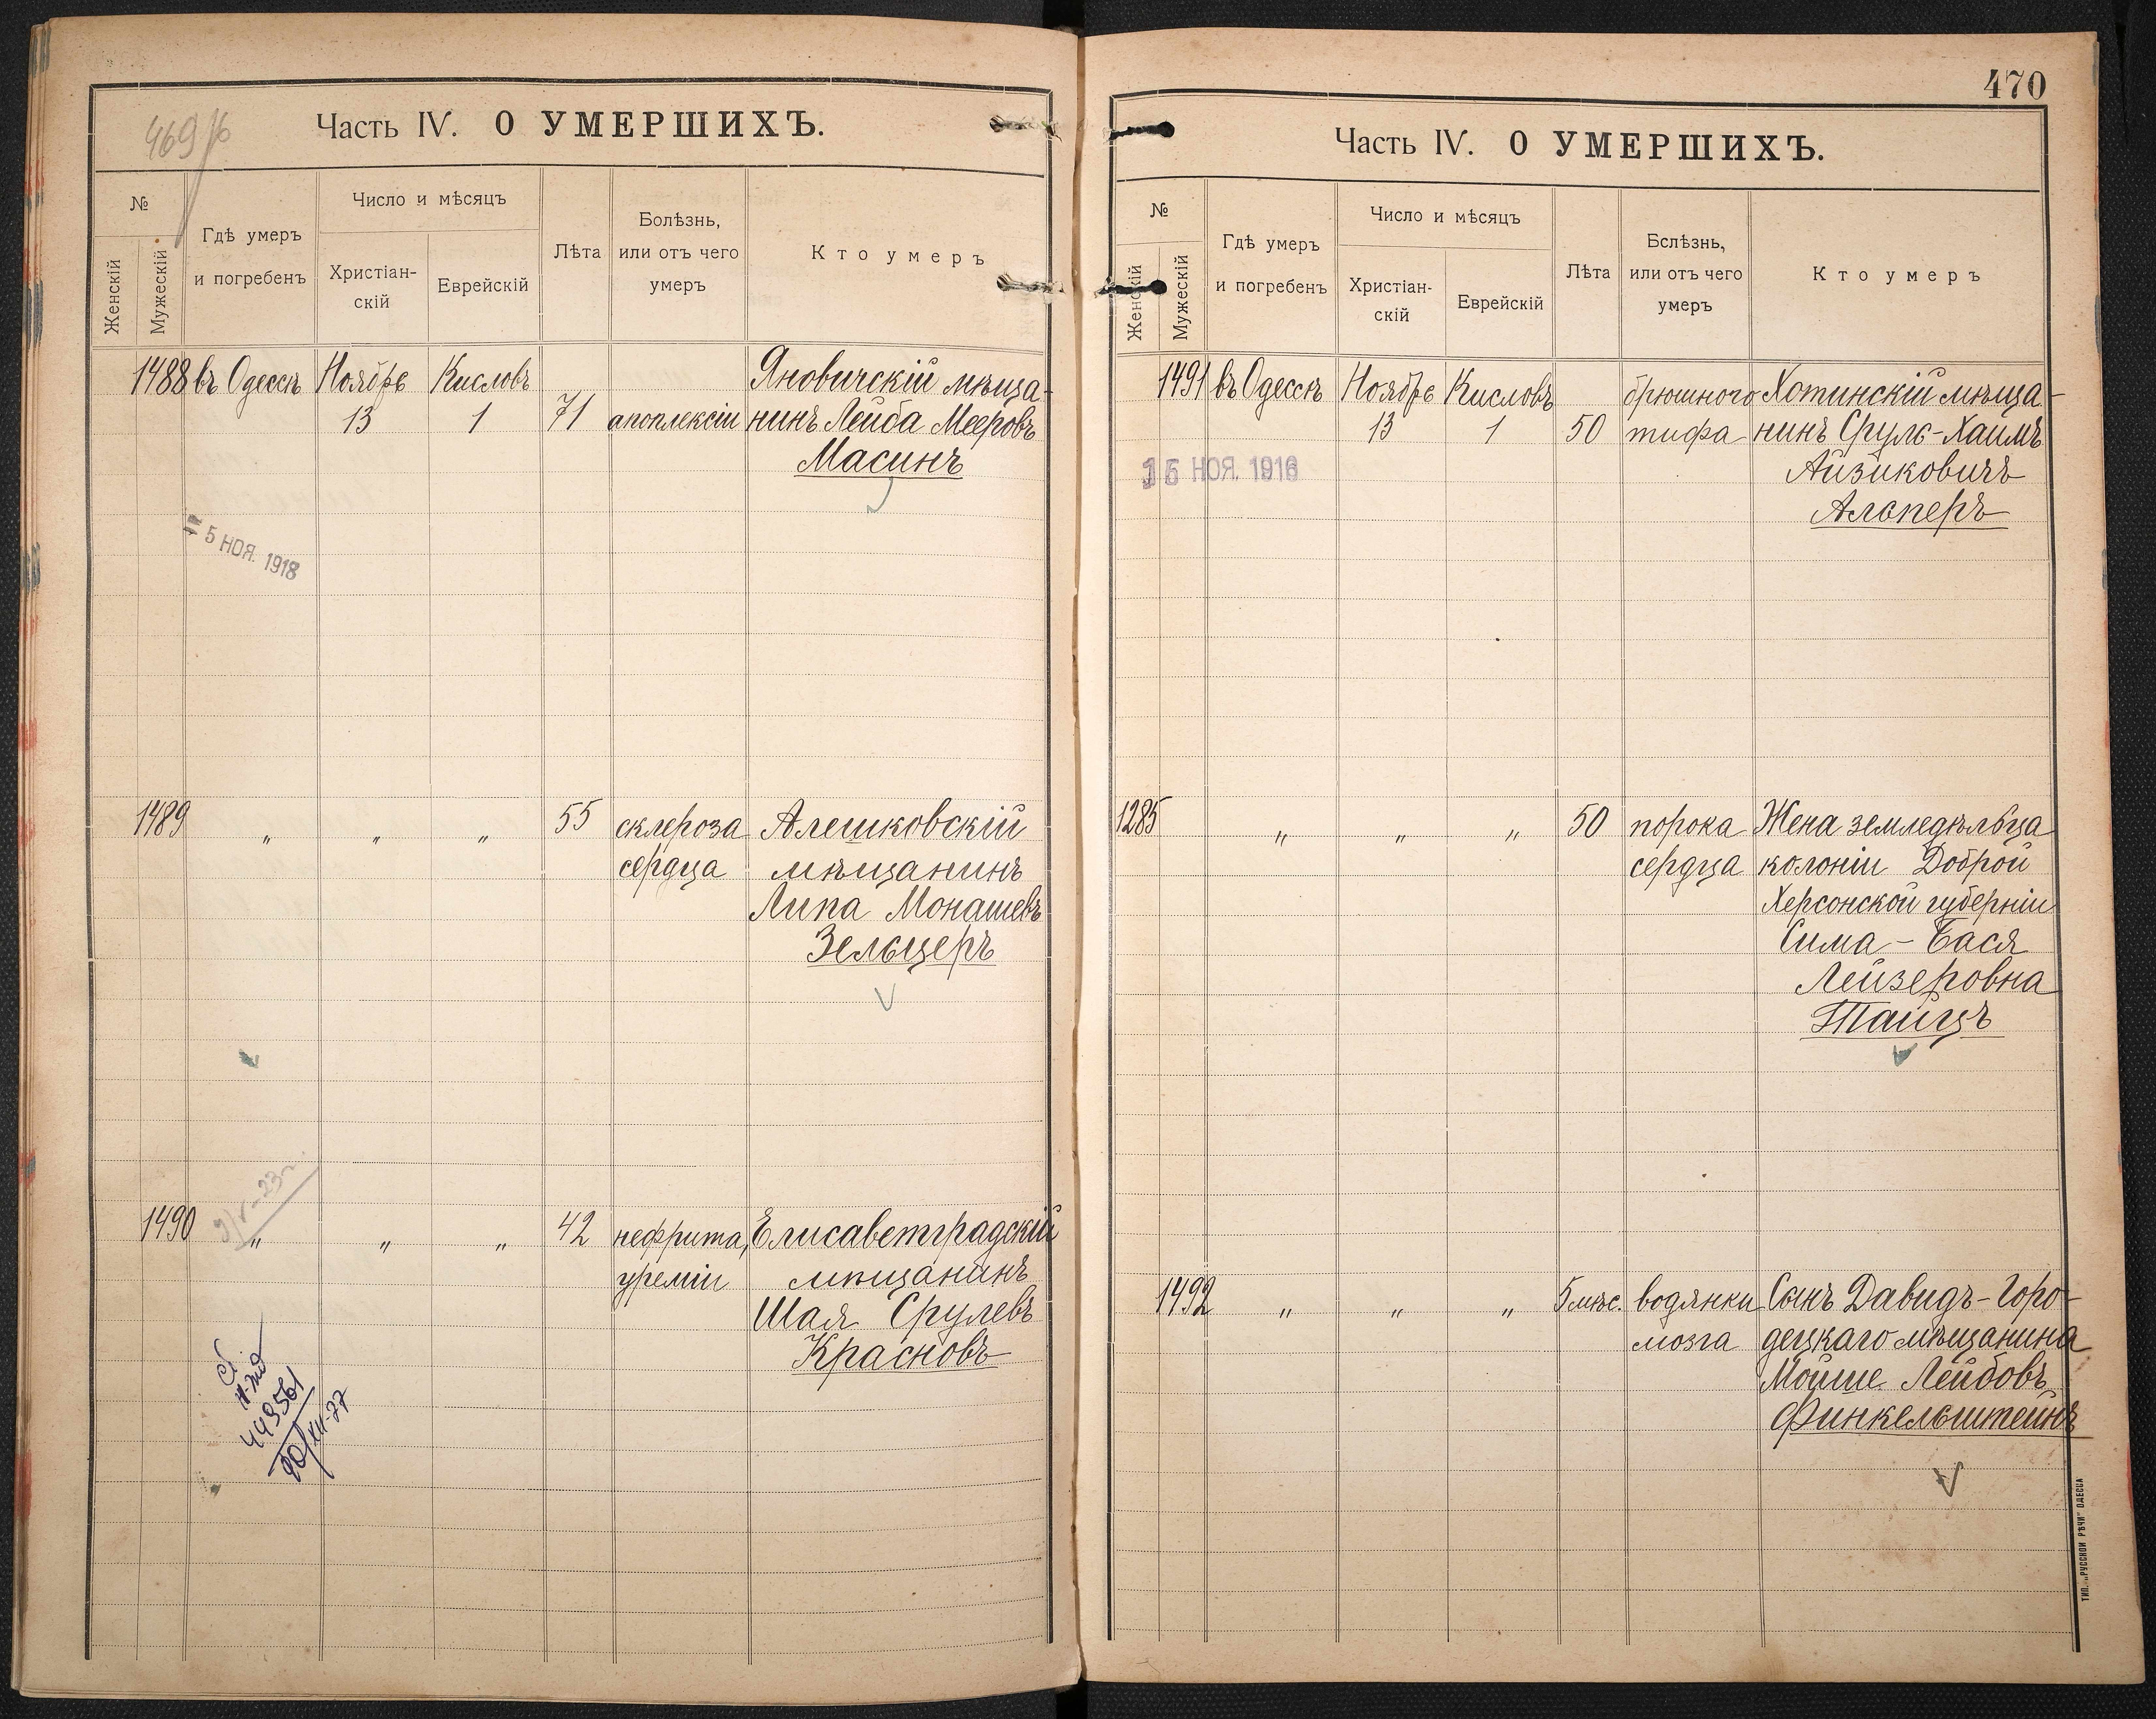 469 об
Часть IV. О УМЕРШИХЪ.
№
Женскій
Мужескій
Гдѣ умеръ
и погребенъ
Число и мѣсяцъ
Христіан-
скій
Еврейскій
Лѣта
Болѣзнь,
или отъ чего
умеръ
Кто умеръ
1488 въ Одессѣ Ноябрь Кисловъ Яновичскій мѣща-
13 1 71 апоплексіи нинъ Лейба Мееровъ
Масинъ
5 НОЯ. 1918
1489 „ „ „ 55 склероза Алешковскій
сердца мѣщанинъ
Липа Монашевъ
Зельцеръ
1490 „ „ „ 42 нефрита, Елисаветградскій
уреміи мѣщанинъ
Шая Срулевъ
Красновъ
449561
470
Часть IV. О УМЕРШИХЪ.
№
Женскій
Мужескій
Гдѣ умеръ
и погребенъ
Число и мѣсяцъ
Христіан-
скій
Еврейскій
Лѣта
Бслѣзнь,
или отъ чего
умеръ
Кто умеръ
1491 въ Одессѣ Ноябрь Кисловъ брюшного Хотинскій мѣща-
13 1 50 тифа нинъ Сруль-Хаимъ
15 НОЯ. 1916
Айзиковичъ
Альперъ
1285 „ „ „ 50 порока Жена земледѣльца
сердца колоніи Доброй
Херсонской губерніи
Сима-Бася
Лейзеровна
Тайцъ
1492 „ „ „ 5 мѣс. водянки Сынъ Давидъ-Горо-
мозга децкаго мѣщанина
Мойше Лейбовъ
Финкельштейнъ
ТИП. „РУССКОЙ РѢЧИ“ ОДЕССА